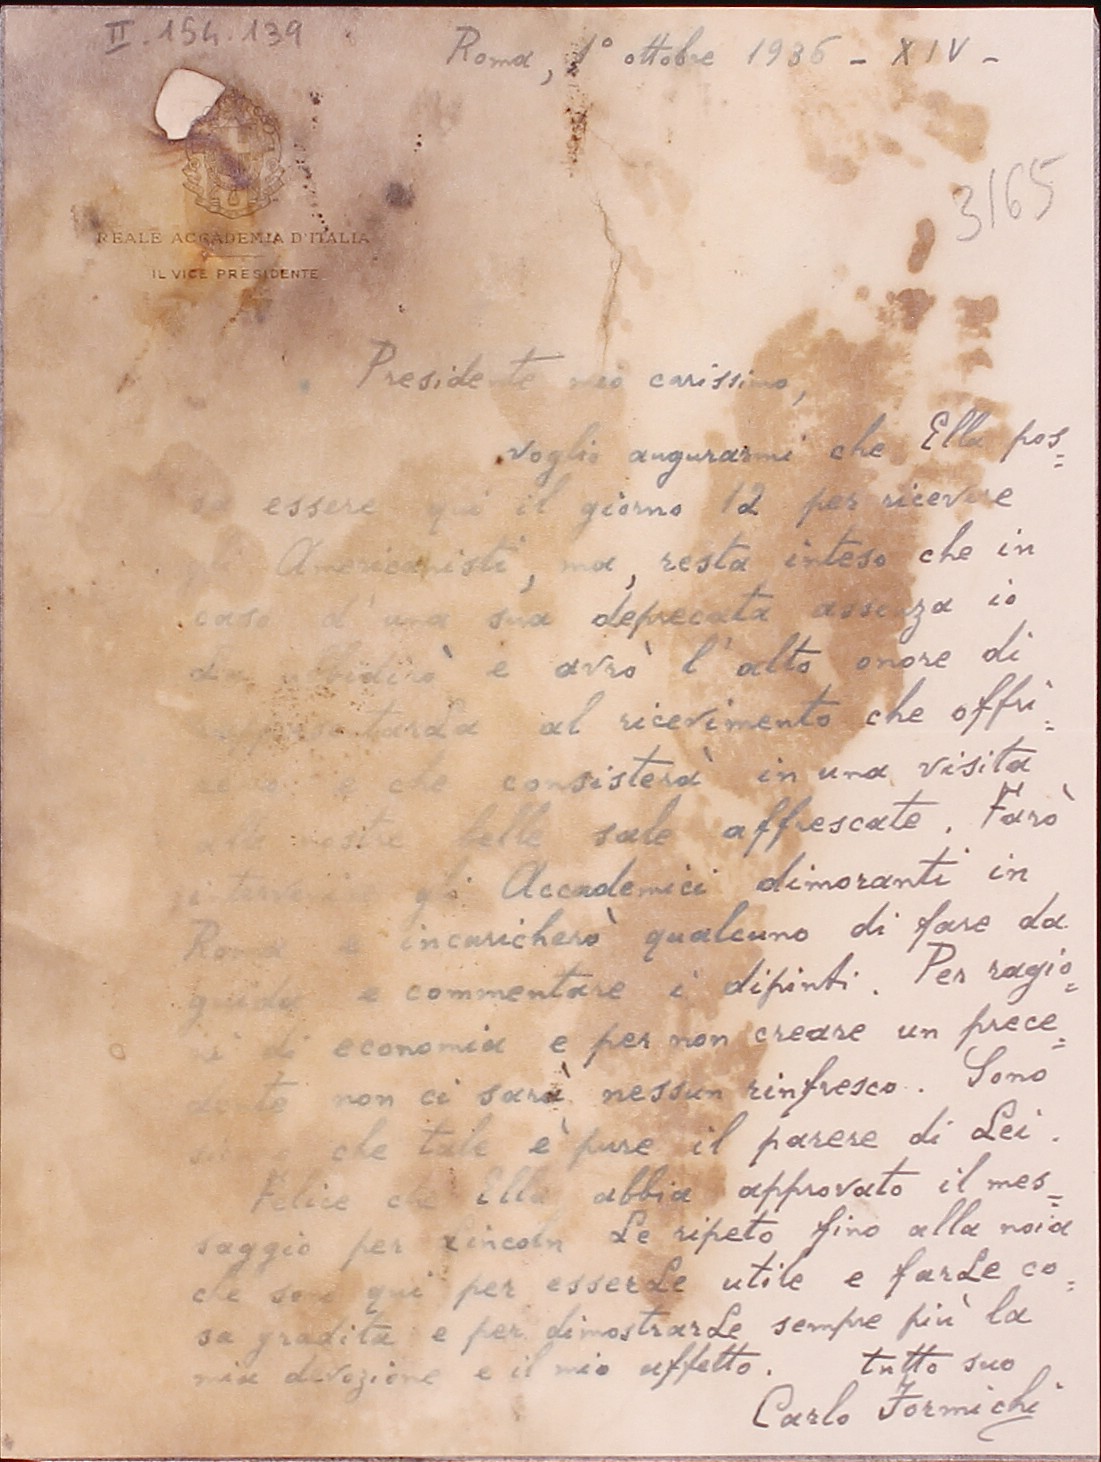 II.154.139
Roma, 1° ottobre 1936 - XIV -
3165
REALE ACCADEMIA D'ITALIA
IL VICE PRESIDENTE
Presidente mio carissimo,
voglio augurarmi che Ella pos=
sa essere qui il giorno 12 per ricevere
gli Americanisti, ma, resta inteso che in
caso d'una sua deprecata assenza io
ubbidirò e avrò l'alto onore di
rappresentarLa al ricevimento che offri=
remo e che consisterà in una visita
alle nostre belle sale affrescate. Farò
intervenire gli Accademici dimoranti in
Roma e incaricherò qualcuno di fare da
guida e commentare i dipinti. Per ragio=
ni di economia e per non creare un prece=
dente non ci sarà nessun rinfresco. Sono
sicuro che tale è pure il parere di Lei.
Felice che Ella abbia approvato il mes=
saggio per Lincoln Le ripeto fino alla noia
che sono qui per esserLe utile e farLe co=
sa gradita e per dimostrarLe sempre più la
mia devozione e il mio affetto. tutto suo
Carlo Formichi